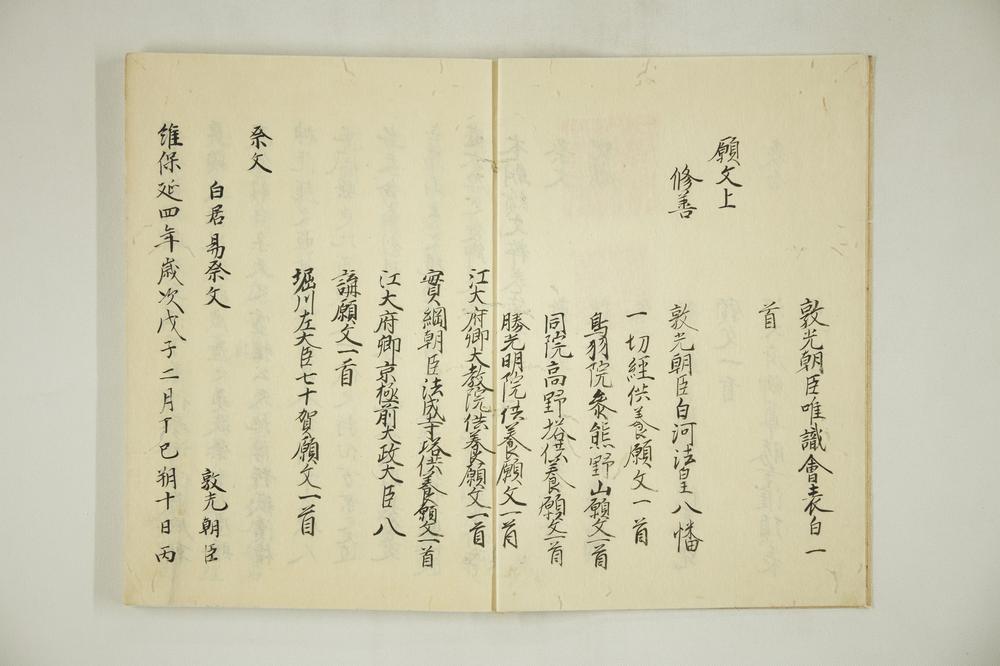 敦光朝臣唯識會表白一
首
願文上
修善
敦光朝臣白河法皇八幡
一切經供養願文一首
鳥羽院參熊野山願文一首
同院高野塔供養願文一首
勝光明院供養願文一首
江大府卿大教院供養願文一首
實綱朝臣法成寺塔供養願文一首
江大府卿京極前大政大臣八
講願文一首
堀川左大臣七十賀願文一首
祭文
白居易祭文
敦光朝臣
維保延四年歲次戊子二月丁巳朔十日丙